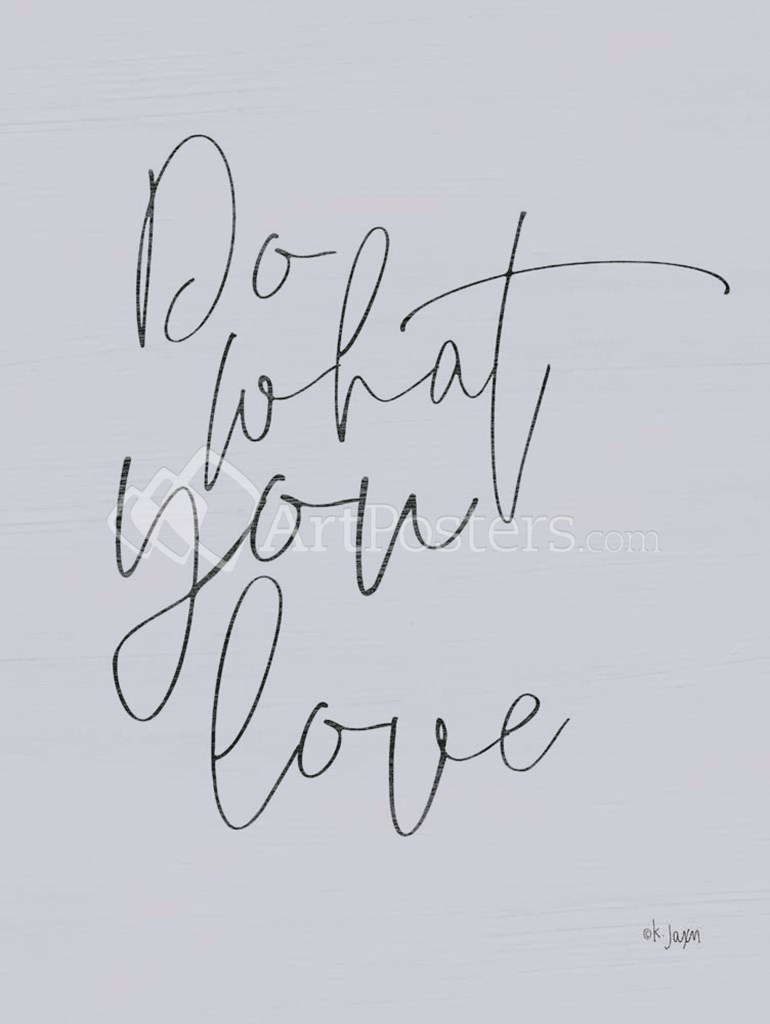 Do
what
you
ArtPosters.com
love
©K. Jaxn